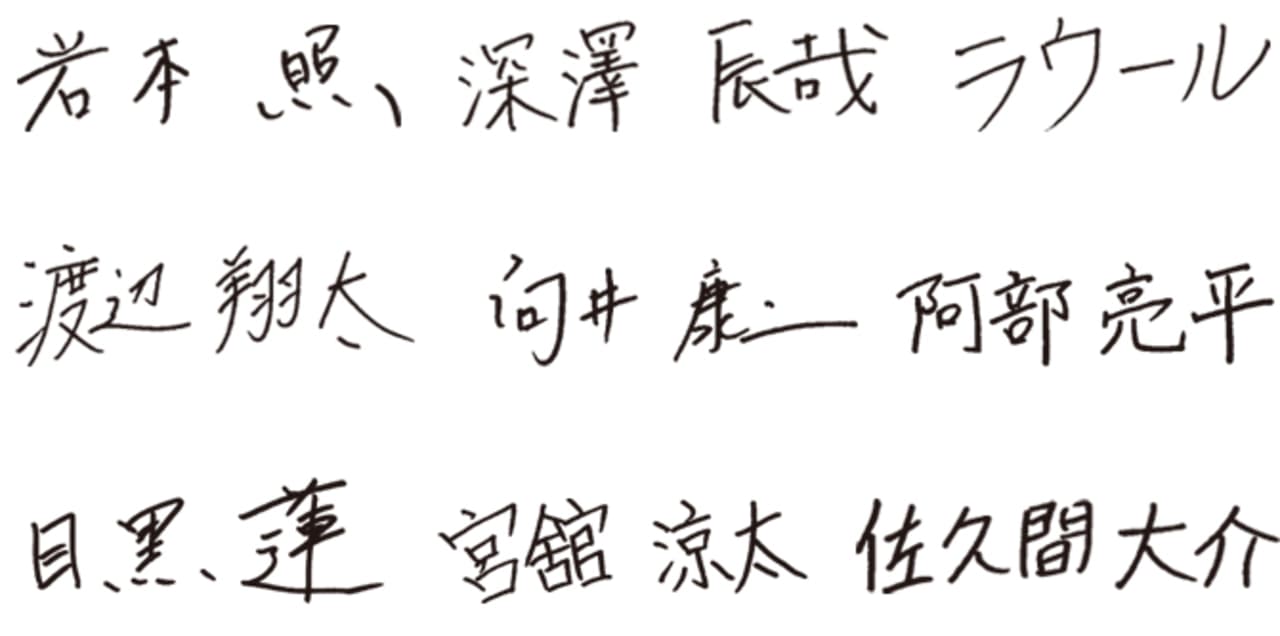 岩本 照 深澤 辰哉 ラウール
渡辺 翔太 向井 康二 阿部 亮平
目黒 蓮 宮舘 涼太 佐久間 大介